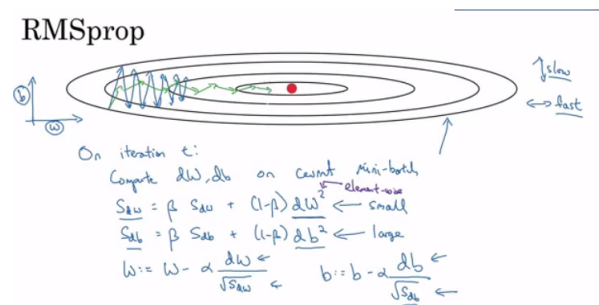 RMSprop
↑ slow
↔ fast
b
w
On iteration t:
Compute dW, db on current mini-batch
element-wise
S_dw = β S_dw + (1-β) dW² ← small
S_db = β S_db + (1-β) db² ← large
W := W - α dW/√S_dw ← b := b - α db/√S_db ←